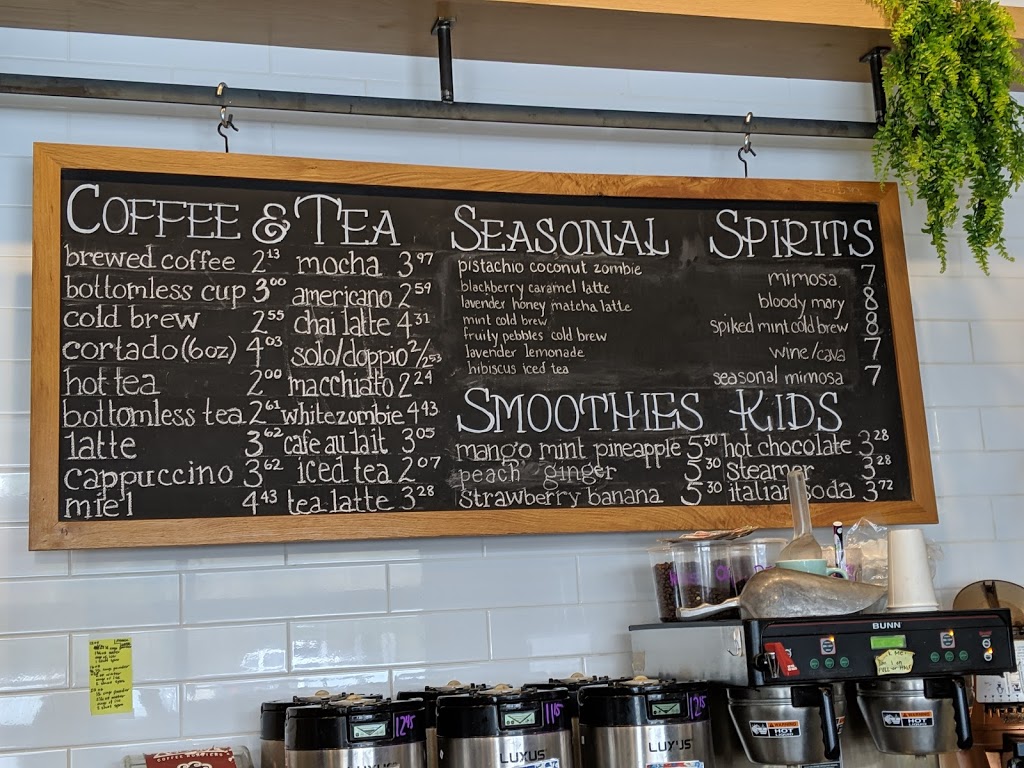 COFFEE & TEA
brewed coffee 2.13
bottomless cup 3.00
cold brew 2.55
cortado (6oz) 4.03
hot tea 2.00
bottomless tea 2.61
latte 3.62
cappuccino 3.62
miel 4.43
mocha 3.97
americano 2.59
chai latte 4.31
solo/doppio 2/2.53
macchiato 2.24
white zombie 4.43
cafe au lait 3.05
iced tea 2.07
tea latte 3.28
SEASONAL
pistachio coconut zombie
blackberry caramel latte
lavender honey matcha latte
mint cold brew
fruity pebbles cold brew
lavender lemonade
hibiscus iced tea
SPIRITS
mimosa 7
bloody mary 8
spiked mint cold brew 8
wine/cava 7
seasonal mimosa 7
SMOOTHIES
mango mint pineapple 5.30
peach ginger 5.30
strawberry banana 5.30
KIDS
hot chocolate 3.28
steamer 3.28
italian soda 3.72
BUNN
12:45
11:15
12:15
LUXUS
LUXUS
LUXUS
WARNING
HOT
WARNING
HOT